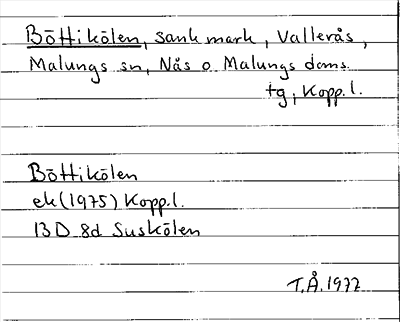 Böttikölen, sank mark, Vallerås,
Malungs sn, Nås o Malungs doms.
tg, Kopp. l.
Böttikölen
ek (1975) Kopp. l.
13 D 8d Suskölen
T.Å. 1977